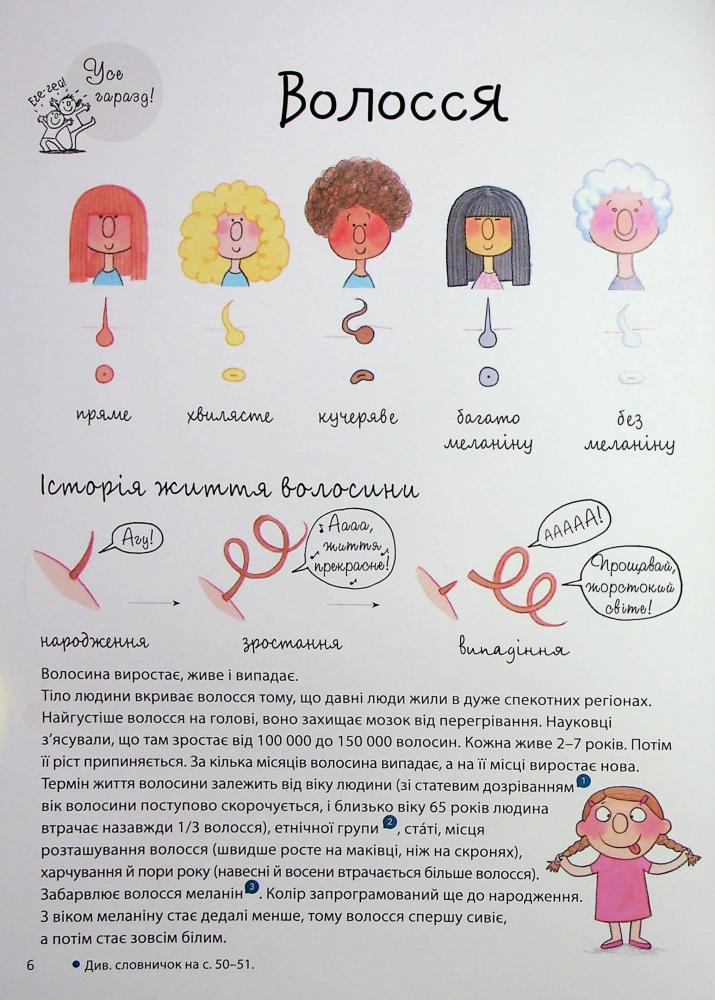 Еге-гей!
Усе
гаразд!
Волосся
пряме
хвилясте
кучеряве
багато
меланіну
без
меланіну
Історія життя волосини
Агу!
Аааа,
життя
прекрасне!
ААААА!
Прощавай,
жорстокий
світе!
народження
зростання
випадіння
Волосина виростає, живе і випадає.
Тіло людини вкриває волосся тому, що давні люди жили в дуже спекотних регіонах.
Найгустіше волосся на голові, воно захищає мозок від перегрівання. Науковці
з’ясували, що там зростає від 100 000 до 150 000 волосин. Кожна живе 2–7 років. Потім
її ріст припиняється. За кілька місяців волосина випадає, а на її місці виростає нова.
Термін життя волосини залежить від віку людини (зі статевим дозріванням 1
вік волосини поступово скорочується, і близько віку 65 років людина
втрачає назавжди 1/3 волосся), етнічної групи 2, ста́ті, місця
розташування волосся (швидше росте на маківці, ніж на скронях),
харчування й пори року (навесні й восени втрачається більше волосся).
Забарвлює волосся меланін 3. Колір запрограмований ще до народження.
З віком меланіну стає дедалі менше, тому волосся спершу сивіє,
а потім стає зовсім білим.
6 • Див. словничок на с. 50–51.